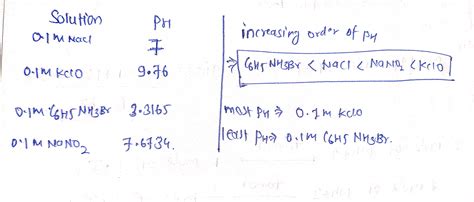 Solution PH
0.1M Nacl 7
0.1M KclO 9.76
0.1M C6H5 NH3Br 3.3165
0.1M NaNO2 7.6734.
increasing order of PH
⇒ C6H5NH3Br < Nacl < NaNO2 < KclO
most PH ⇒ 0.1M KclO
least PH ⇒ 0.1M C6H5 NH3Br.